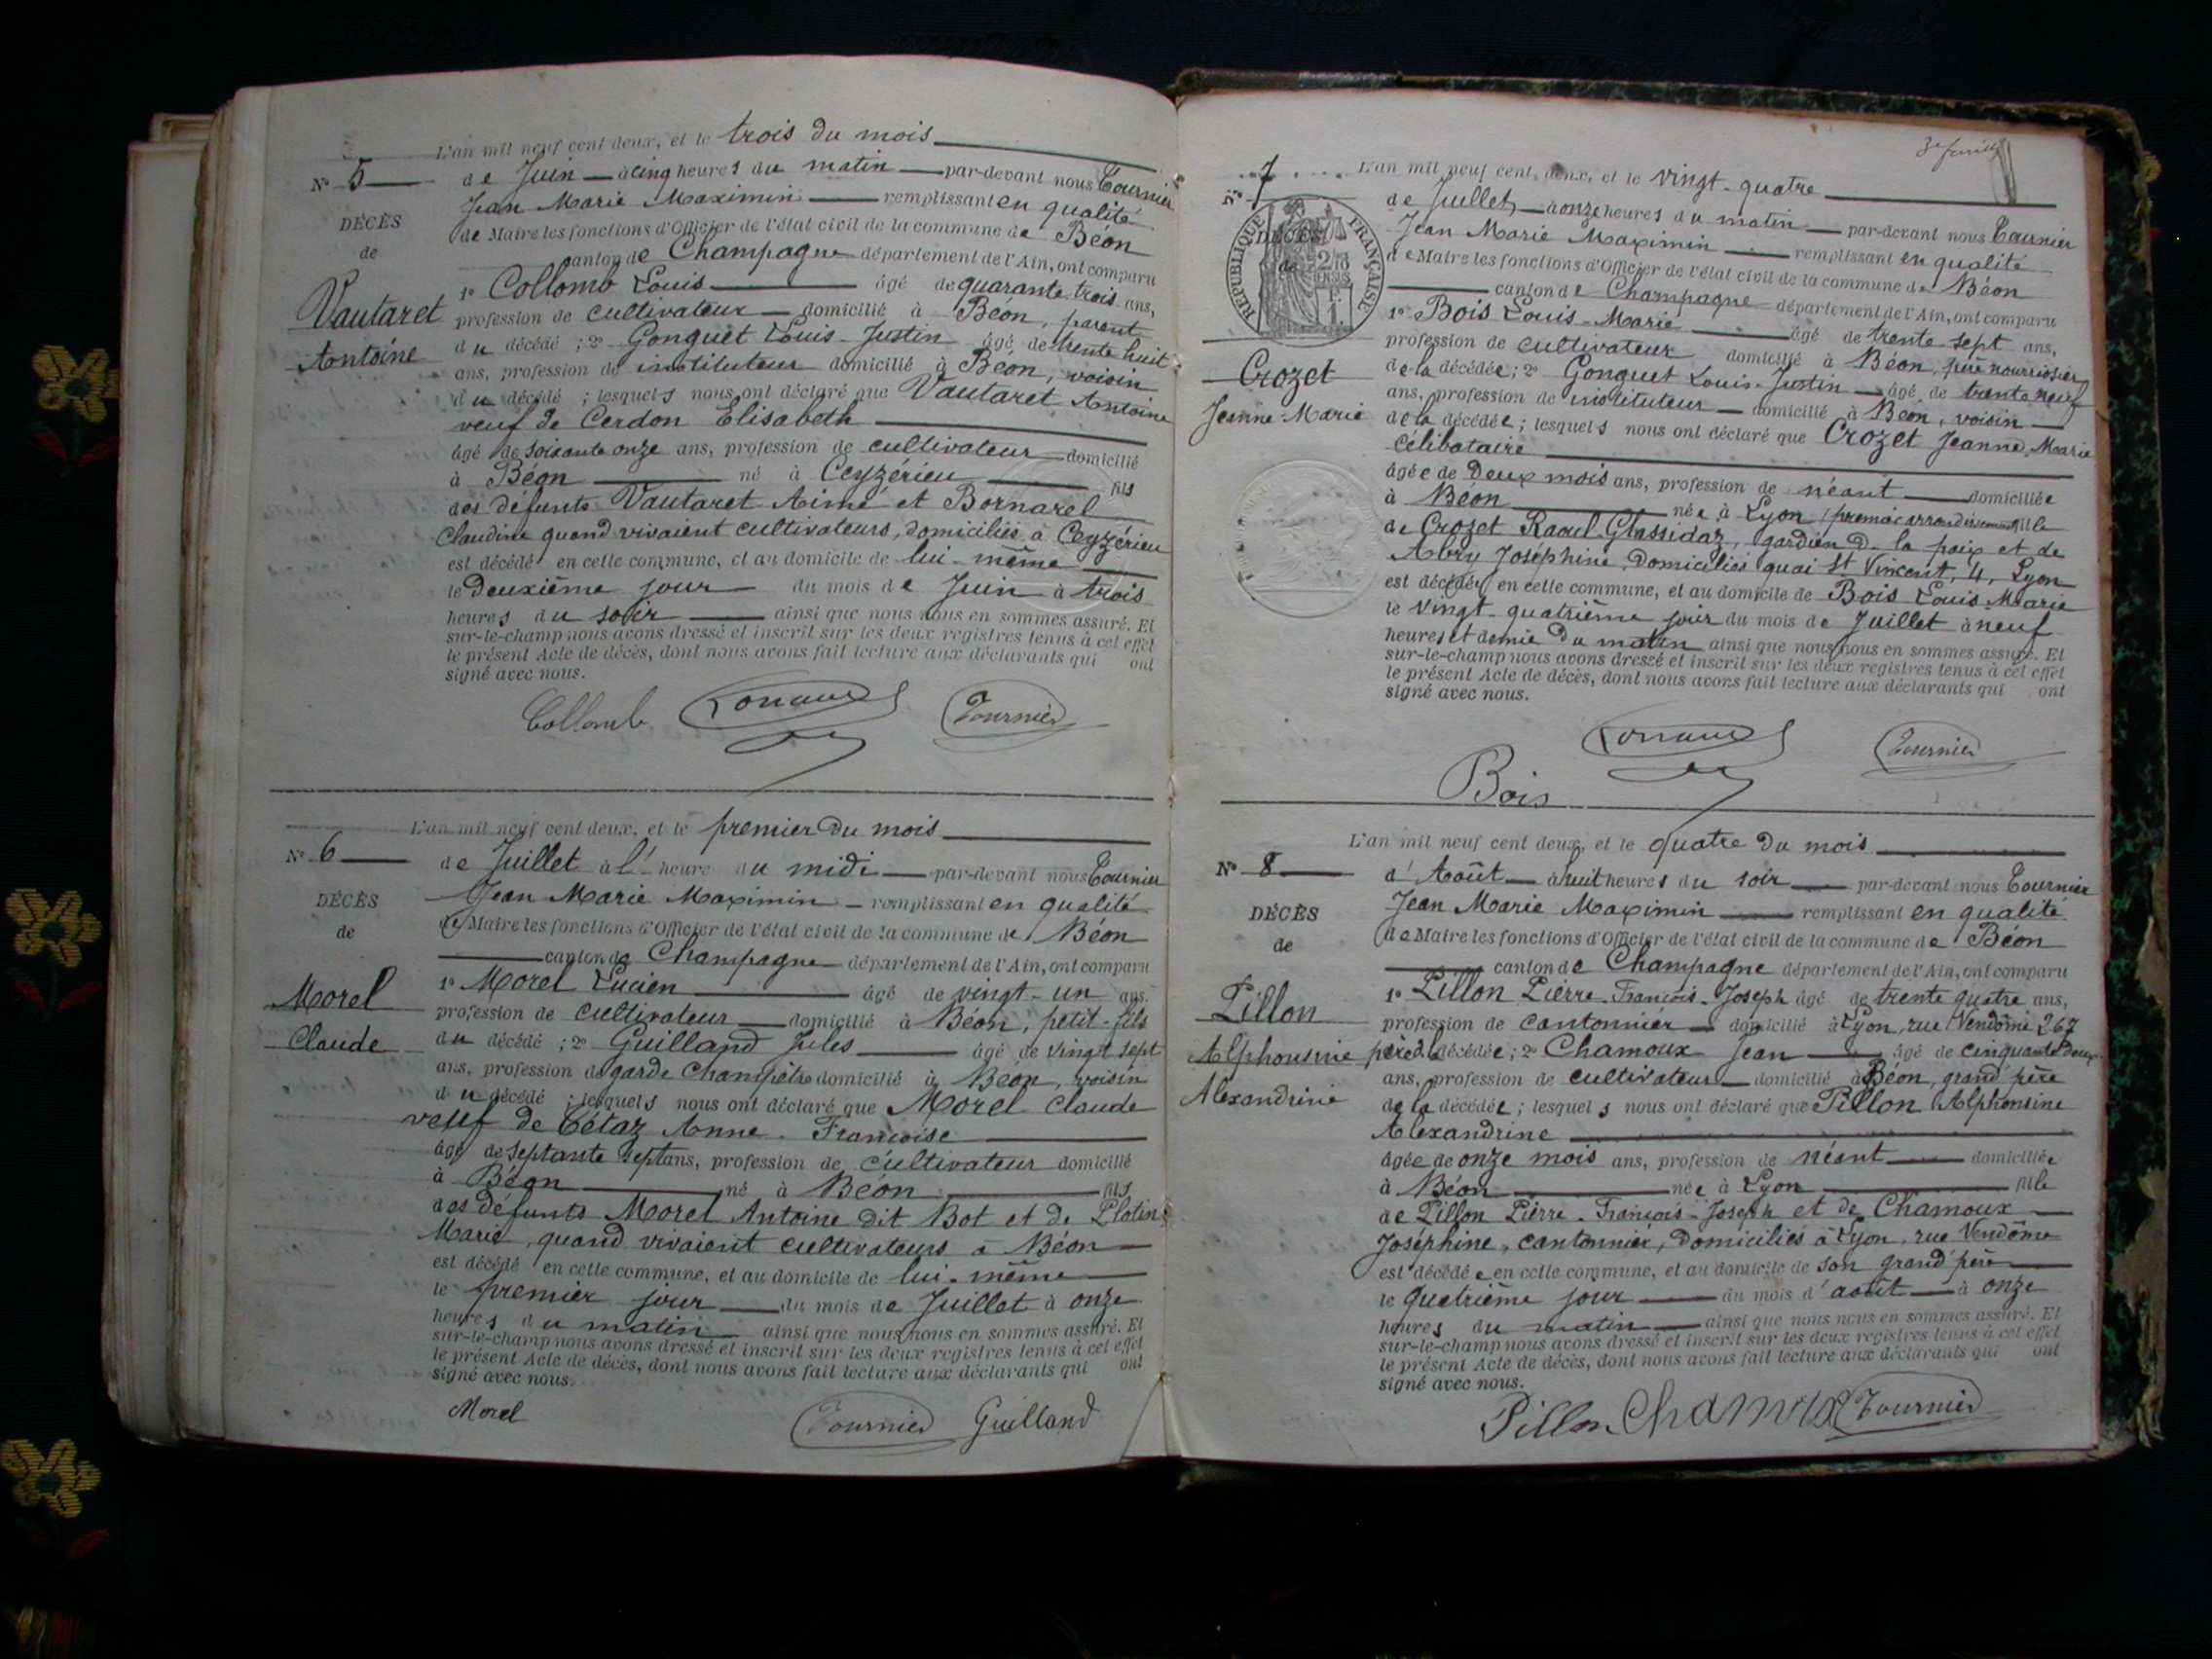 L'an mil neuf cent deux, et le trois du mois
N° 5
de Juin à cinq heures du matin par-devant nous Tournier
Jean Marie Maximin remplissant en qualité
DÉCÈS
de Maire les fonctions d'Officier de l'état civil de la commune de Béon
de
canton de Champagne département de l'Ain, ont comparu
1° Collomb Louis âgé de quarante trois ans,
Vautaret
profession de cultivateur domicilié à Béon, parent
Antoine
du décédé ; 2° Gonguet Louis-Justin âgé de trente huit
ans, profession de instituteur domicilié à Béon, voisin
du décédé ; lesquels nous ont déclaré que Vautaret Antoine
veuf de Cerdon Elisabeth
âgé de soixante onze ans, profession de cultivateur domicilié
à Béon né à Ceyzérieu fils
des défunts Vautaret Aimé et Bornarel
Claudine quand vivaient cultivateurs, domiciliés à Ceyzérieu
est décédé en cette commune, et au domicile de lui-même
le deuxième jour du mois de Juin à trois
heures du soir ainsi que nous nous en sommes assuré. Et
sur-le-champ nous avons dressé et inscrit sur les deux registres tenus à cet effet
le présent Acte de décès, dont nous avons fait lecture aux déclarants qui ont
signé avec nous.
Collomb Tournier
L'an mil neuf cent deux, et le premier du mois
N° 6
de Juillet à l' heure du midi par-devant nous Tournier
DÉCÈS
Jean Marie Maximin remplissant en qualité
de
de Maire les fonctions d'Officier de l'état civil de la commune de Béon
canton de Champagne département de l'Ain, ont comparu
Morel
1° Morel Lucien âgé de vingt-un ans.
profession de cultivateur domicilié à Béon, petit-fils
Claude
du décédé ; 2° Guilland Jules âgé de vingt sept
ans, profession de garde champêtre domicilié à Béon, voisin
du décédé ; lesquels nous ont déclaré que Morel Claude
veuf de Tétaz Anne-Françoise
âgé de septante sept ans, profession de cultivateur domicilié
à Béon né à Béon fils
des défunts Morel Antoine dit Bot et de Plotin
Marie, quand vivaient cultivateurs à Béon
est décédé en cette commune, et au domicile de lui-même
le premier jour du mois de Juillet à onze
heures du matin ainsi que nous nous en sommes assuré. Et
sur-le-champ nous avons dressé et inscrit sur les deux registres tenus à cet effet
le présent Acte de décès, dont nous avons fait lecture aux déclarants qui ont
signé avec nous.
Morel Tournier Guilland
L'an mil neuf cent deux, et le vingt-quatre
N° 7
de Juillet à onze heures du matin par-devant nous Tournier
Jean Marie Maximin remplissant en qualité
DÉCÈS
de Maire les fonctions d'Officier de l'état civil de la commune de Béon
de
RÉPUBLIQUE FRANÇAISE
canton de Champagne département de l'Ain, ont comparu
1° Bois Louis-Marie âgé de trente-sept ans,
profession de cultivateur domicilié à Béon, père nourricier
Crozet
de la décédée ; 2° Gonguet Louis-Justin âgé de trente neuf
ans, profession de instituteur domicilié à Béon, voisin
Jeanne-Marie
de la décédée ; lesquels nous ont déclaré que Crozet Jeanne-Marie
célibataire
âgée de deux mois ans, profession de néant domiciliée
à Béon née à Lyon, premier arrondissement fille
de Crozet Raoul Glassidaz, gardien de la paix et de
Abry Joséphine, domiciliés quai St Vincent, 4, Lyon
est décédée en cette commune, et au domicile de Bois Louis-Marie
le vingt-quatrième jour du mois de Juillet à neuf
heures et demie du matin ainsi que nous nous en sommes assuré. Et
sur-le-champ nous avons dressé et inscrit sur les deux registres tenus à cet effet
le présent Acte de décès, dont nous avons fait lecture aux déclarants qui ont
signé avec nous.
Tournier
Bois
L'an mil neuf cent deux, et le quatre du mois
N° 8
d'Août à huit heures du soir par-devant nous Tournier
DÉCÈS
Jean Marie Maximin remplissant en qualité
de
de Maire les fonctions d'Officier de l'état civil de la commune de Béon
canton de Champagne département de l'Ain, ont comparu
Pillon
1° Pillon Pierre-François-Joseph âgé de trente quatre ans,
profession de cantonnier domicilié à Lyon, rue Vendôme 267
Alphonsine
père de la décédée ; 2° Chamoux Jean âgé de cinquante deux
ans, profession de cultivateur domicilié à Béon, grand père
Alexandrine
de la décédée ; lesquels nous ont déclaré que Pillon Alphonsine
Alexandrine
âgée de onze mois ans, profession de néant domiciliée
à Béon née à Lyon fille
de Pillon Pierre-François-Joseph et de Chamoux
Joséphine, cantonnier, domiciliés à Lyon, rue Vendôme
est décédée en cette commune, et au domicile de son grand'père
le quatrième jour du mois d'août à onze
heures du matin ainsi que nous nous en sommes assuré. Et
sur-le-champ nous avons dressé et inscrit sur les deux registres tenus à cet effet
le présent Acte de décès, dont nous avons fait lecture aux déclarants qui ont
signé avec nous.
Pillon Chamoux Tournier